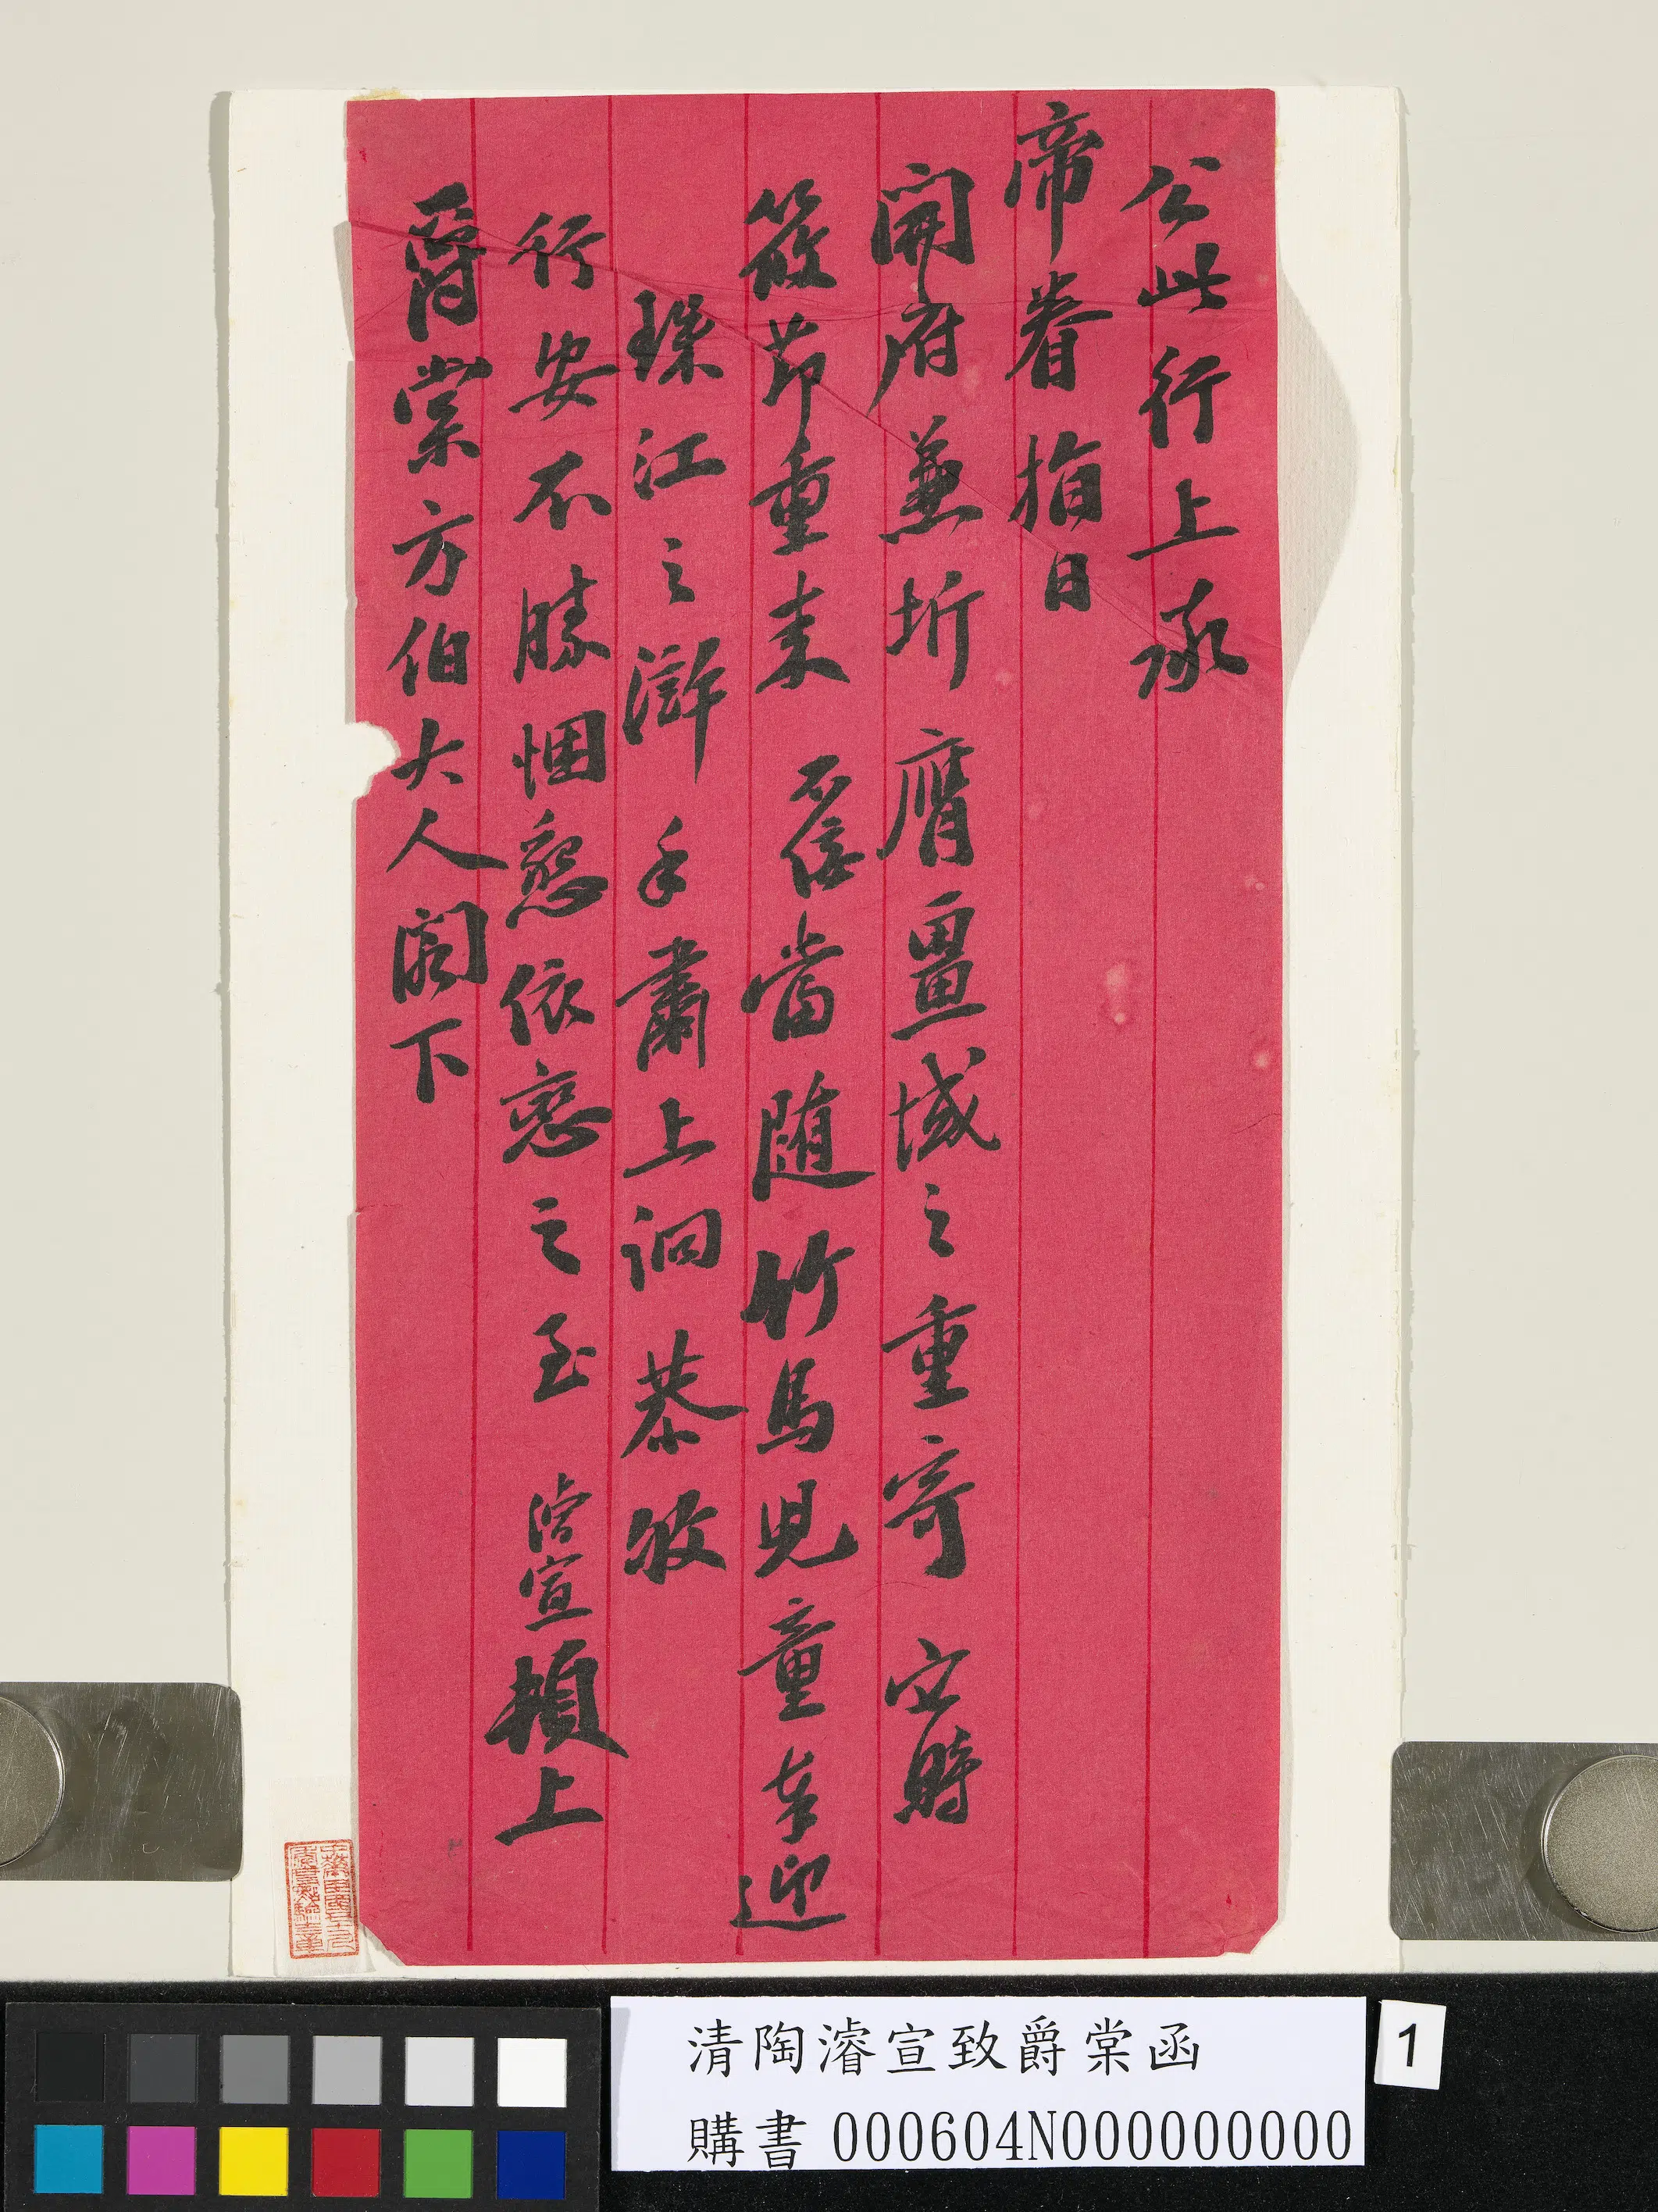 公此行上承
帝眷指日
開府兼圻膺畺域之重寄它時
筱節重來不佞當隨竹馬兒童奉迎
珠江之滸手肅上詗恭敂
行安不勝悃懇依戀之至濬宣頓上
爵棠方伯大人閣下
清陶濬宣致爵棠函
購書 000604N000000000
1